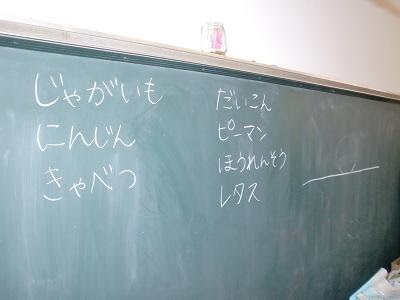 じゃがいも
にんじん
きゃべつ
だいこん
ピーマン
ほうれんそう
レタス